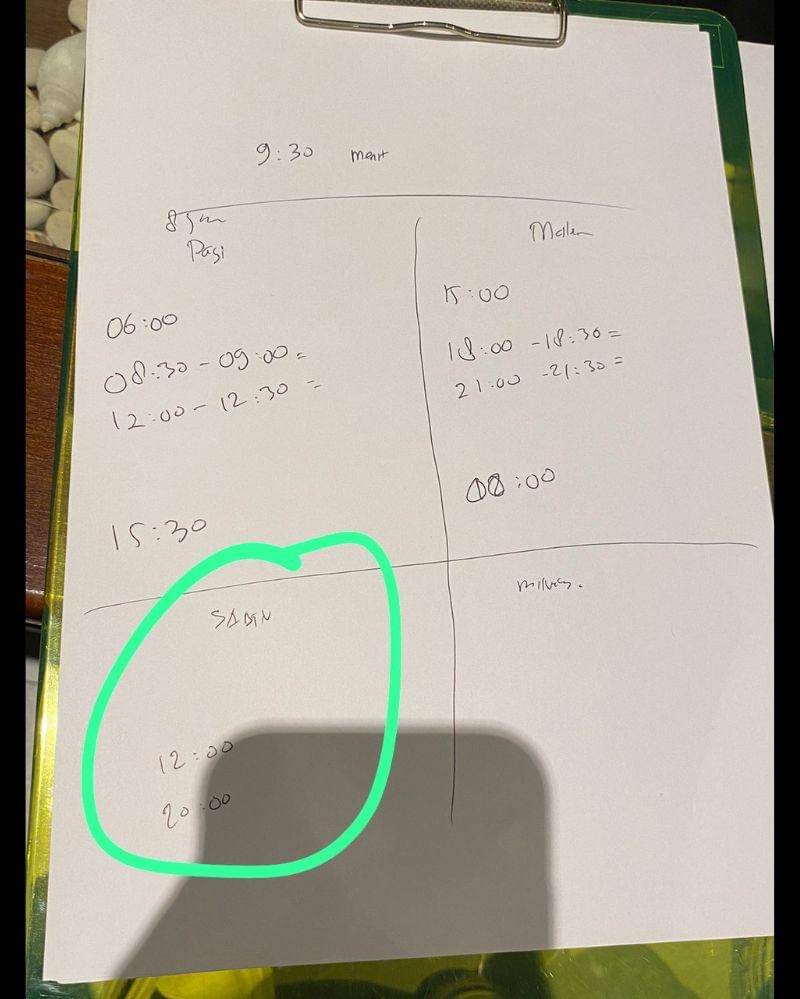 9:30 menit
8 jam
Pagi
06:00
08:30 - 09:00 =
12:00 - 12:30 =
15:30
Malam
15:00
18:00 - 18:30 =
21:00 - 21:30 =
00:00
SABTU
12:00
20:00